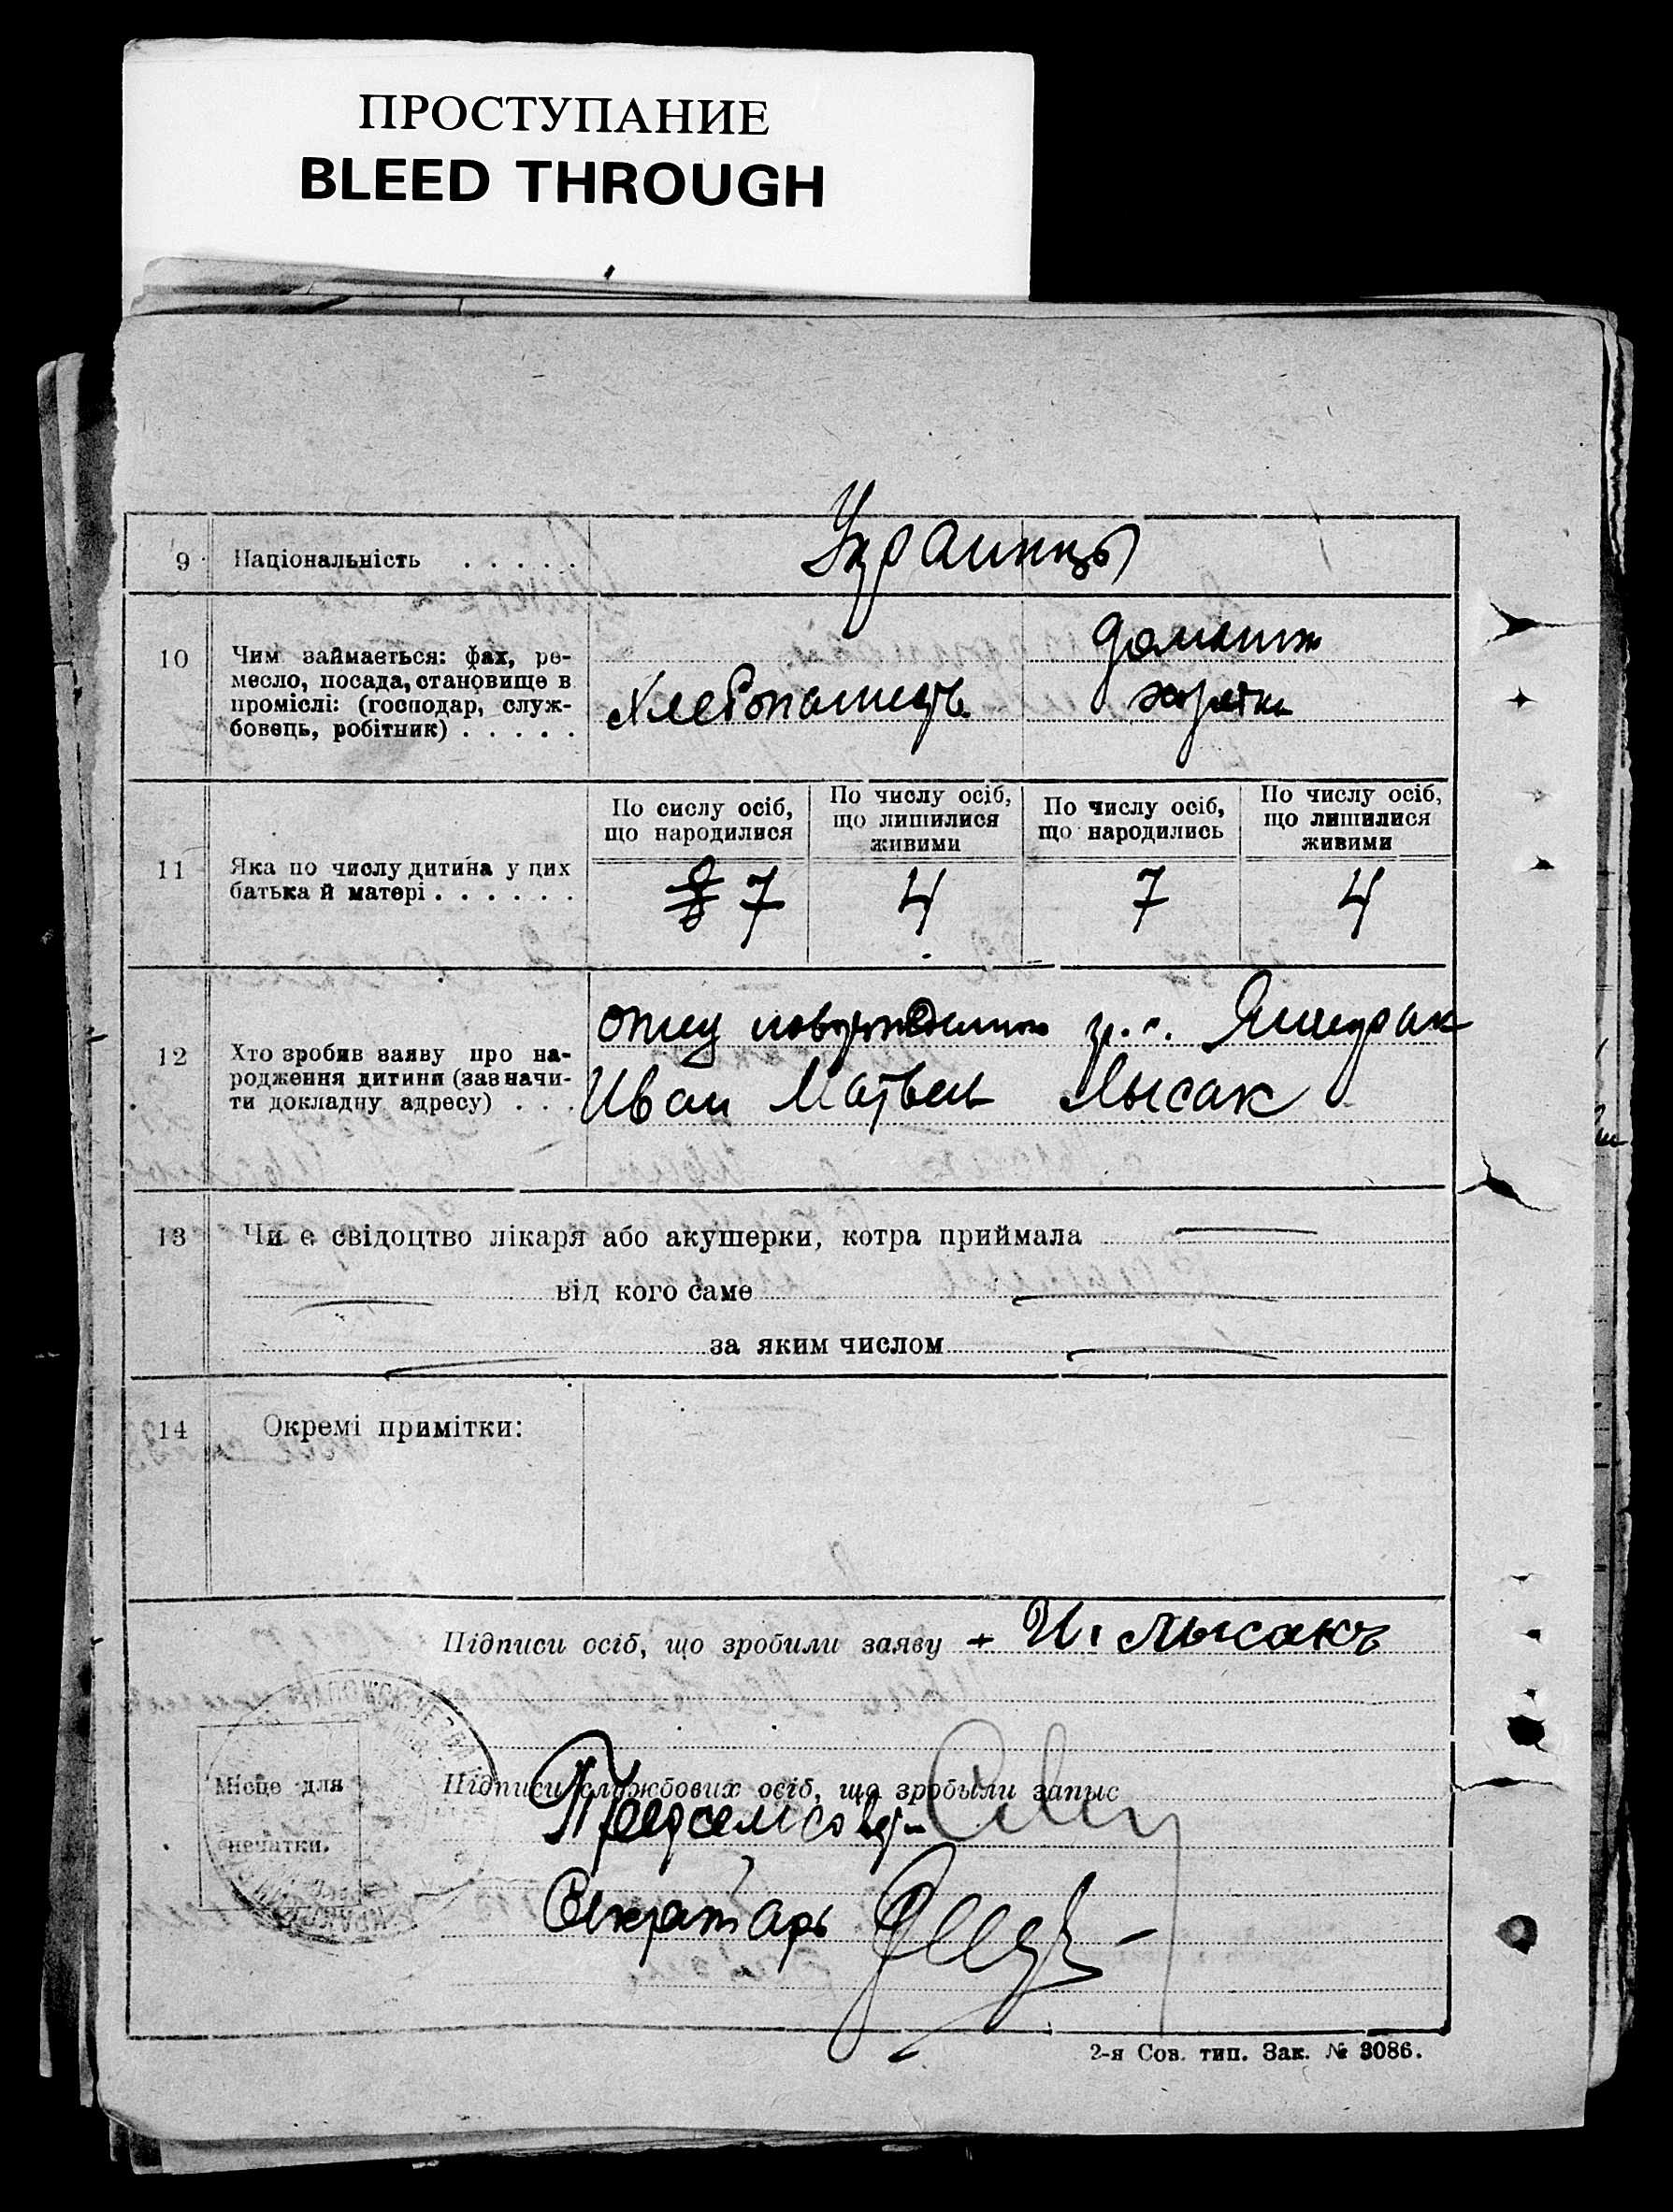 ПРОСТУПАНИЕ
BLEED THROUGH
9 Національність . . . . . Украинцы
10 Чим займається: фах, ре-
месло, посада, становище в
проміслі: (господар, служ-
бовець, робітник) . . . . .
Хлебопашець
домашн
хозяйка
11 Яка по числу дитина у цих
батька й матері . . . . . .
По сислу осіб,
що народилися
По числу осіб,
що лишилися
живими
По числу осіб,
що народились
По числу осіб,
що лишилися
живими
7 4 7 4
12 Хто зробив заяву про на-
родження дитини (зазначи-
ти докладну адресу) . . .
отец
Иван Матвеев Лысак
13 Чи є свідоцтво лікаря або акушерки, котра приймала
від кого саме
за яким числом
14 Окремі примітки:
Підписи осіб, що зробили заяву + И. Лысакъ
Підписи службових осіб, що зробыли запыс
Предсельсовет
Місце для
печатки.
Секратарь
2-я Сов. тип. Зак. № 3086.